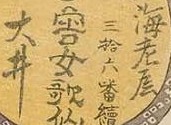 海老屋
三拾六番續
女歌仙
大井